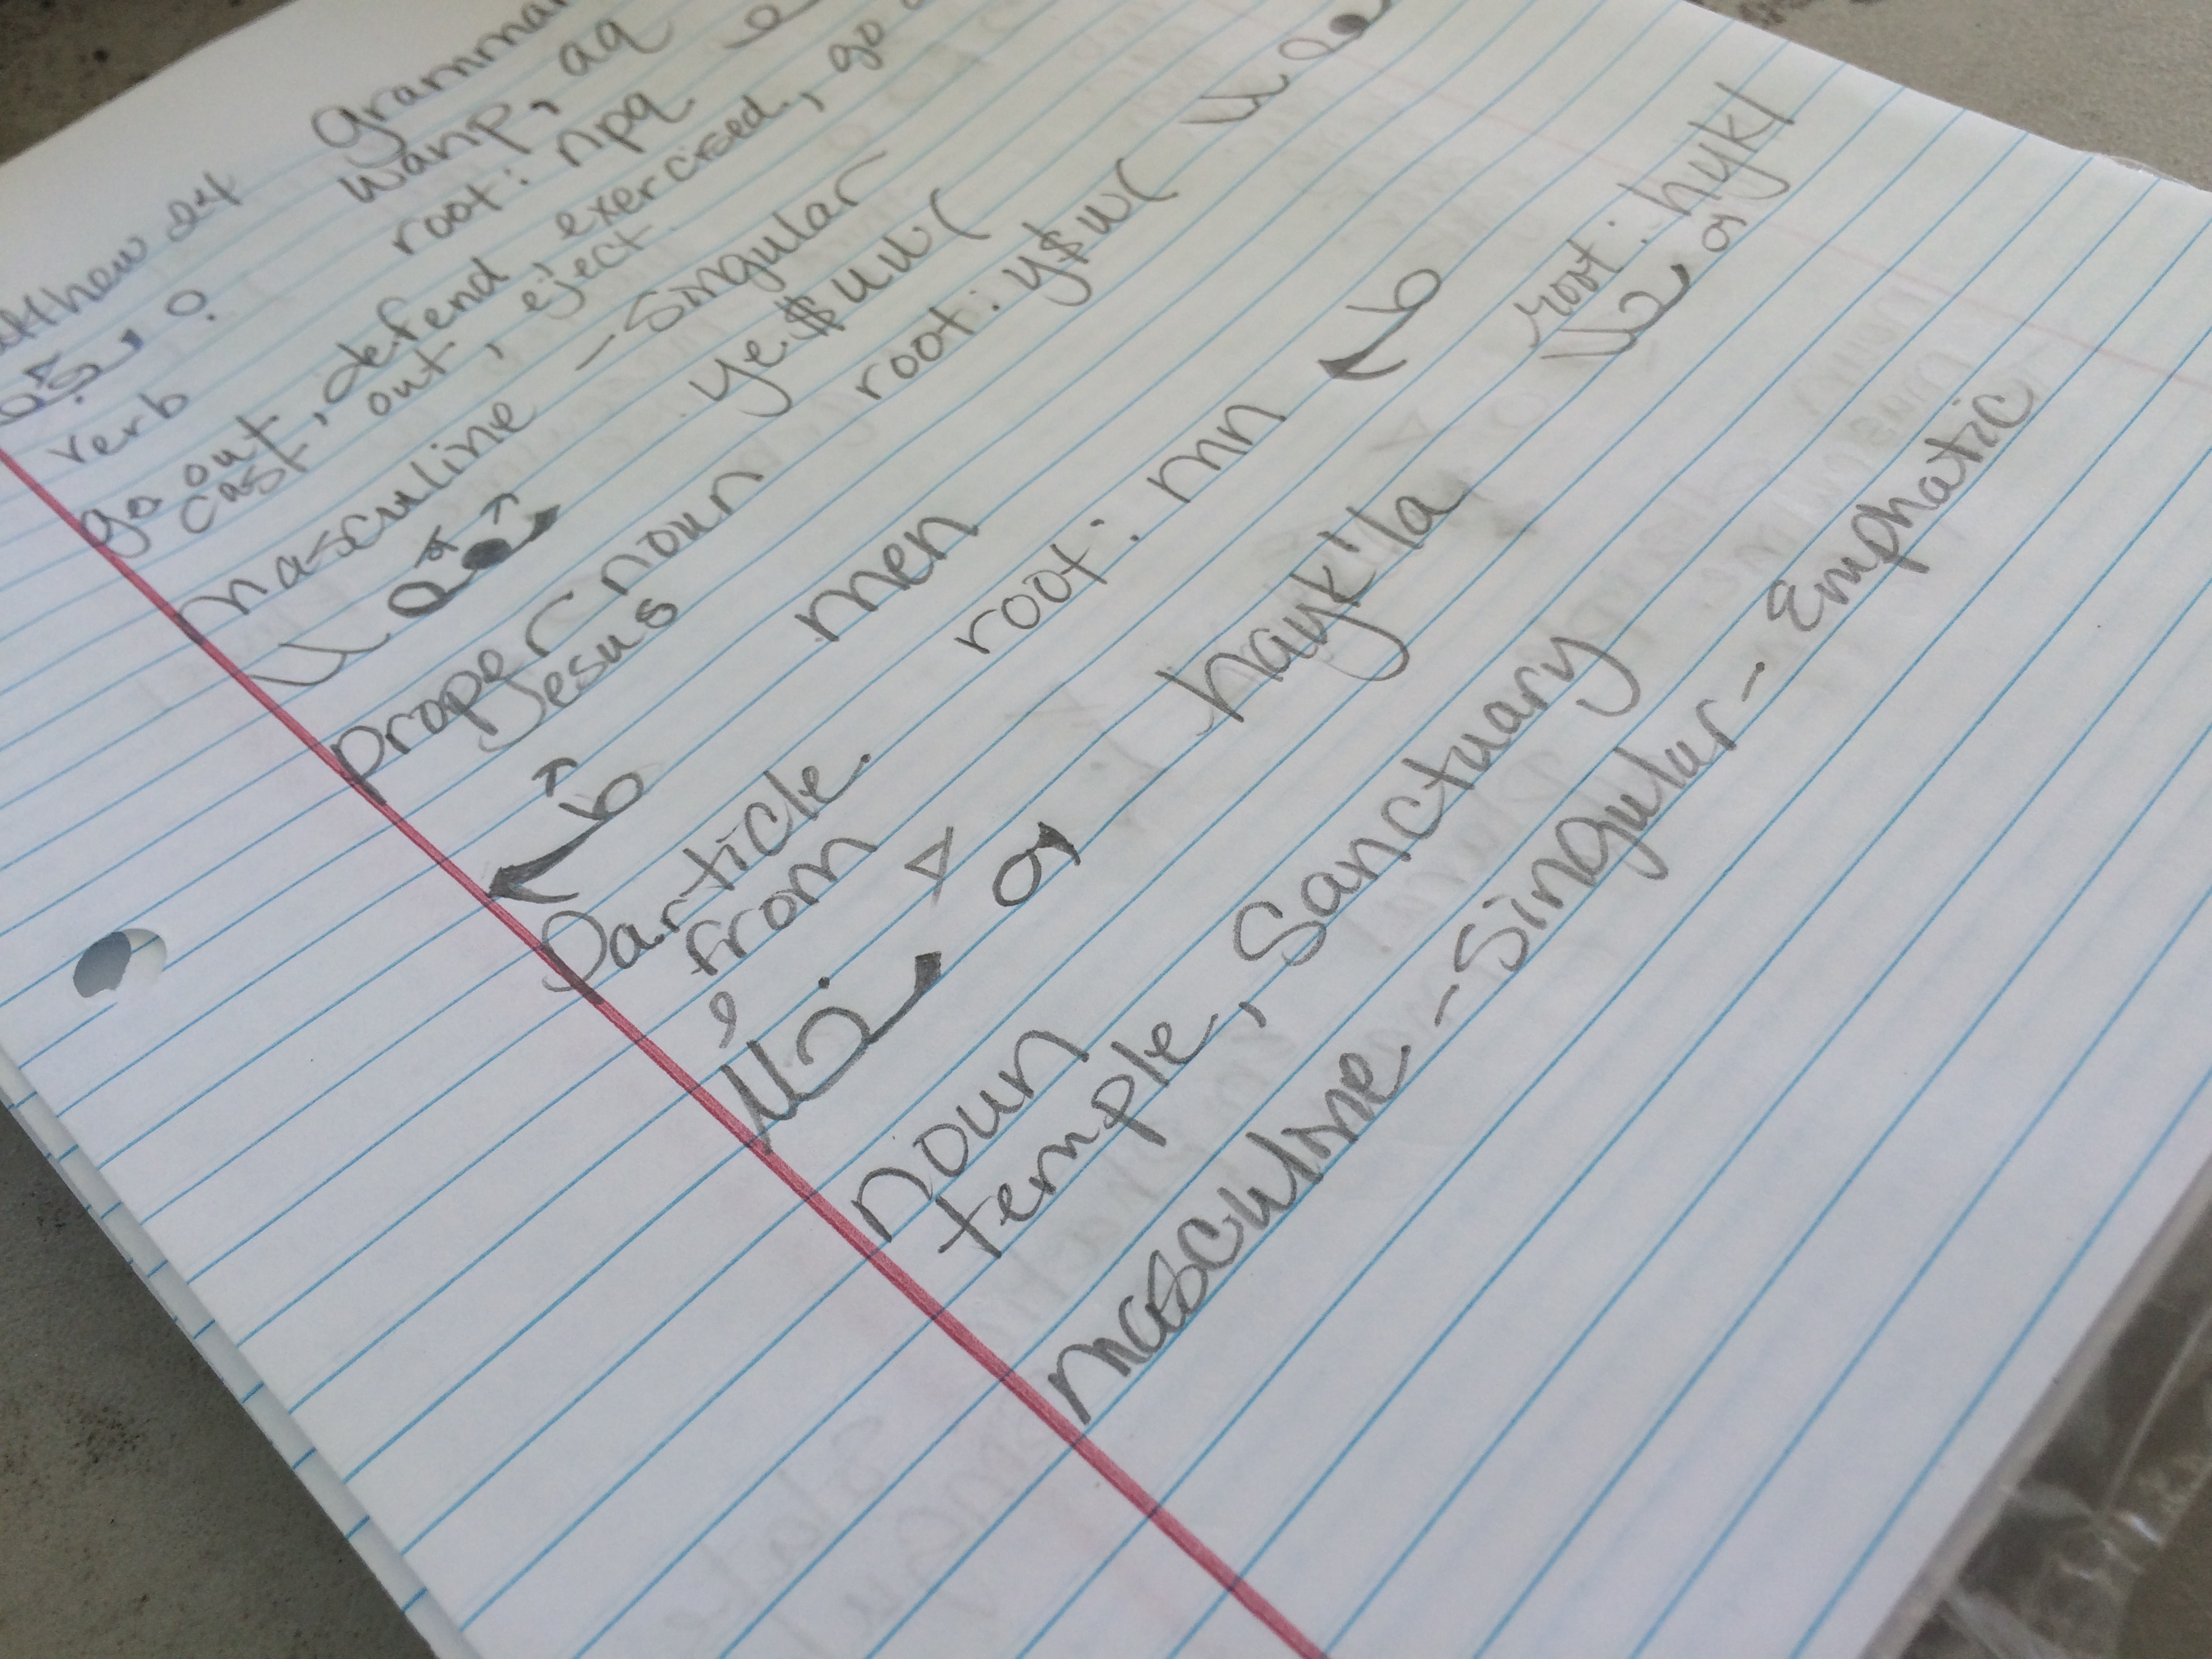 Matthew 24 Grammar
wanp,aq
verb root: npq
go out, defend exercised, go
cast out, eject
masculine - singular
ܝܶܫܽܘܥ ye$uw(
proper noun root: y$w( ܝܫܘܥ
Jesus
ܡܶܢ men
Particle. root: mn ܡܢ
from
ܗܰܝܟ݁ܠܳܐ hayk'la root: hykl
noun ܗܝܟܠ
temple, Sanctuary
masculine - Singular - Emphatic